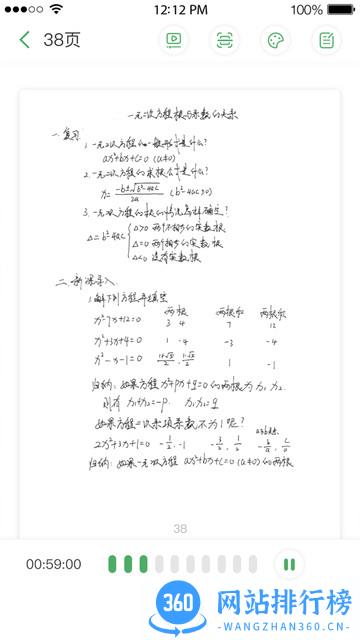 12:12 PM 100%
38页
一元二次方程根与系数的关系
一.复习
1.一元二次方程的一般形式是什么?
ax²+bx+c=0 (a≠0)
2.一元二次方程的求根公式是什么?
x= -b±√b²-4ac / 2a (b²-4ac≥0)
3.一元二次方程的根的情况怎样确定?
Δ=b²-4ac { Δ>0 两个不相等的实数根
Δ=0 两个相等的实数根
Δ<0 没有实数根
二.新课导入
1.解下列方程并填空
两根 两根和 两根积
x²-7x+12=0 3 4 7 12
x²+3x-4=0 1 -4 -3 -4
x²-x-1=0 1+√5/2 , 1-√5/2 1 -1
归纳:如果方程x²+px+q=0的两根为x₁ x₂
则有 x₁+x₂=-p, x₁x₂=q
如果方程二次项系数不为1呢?
2x²+3x+1=0 -1/2 , -1 -3/2 , 1/2 -b/a , c/a
归纳:如果一元二次方程 ax²+bx+c=0 (a≠0)的两根
38
00:59:00
360 网站排行榜
-WANGZHAN360.CN-